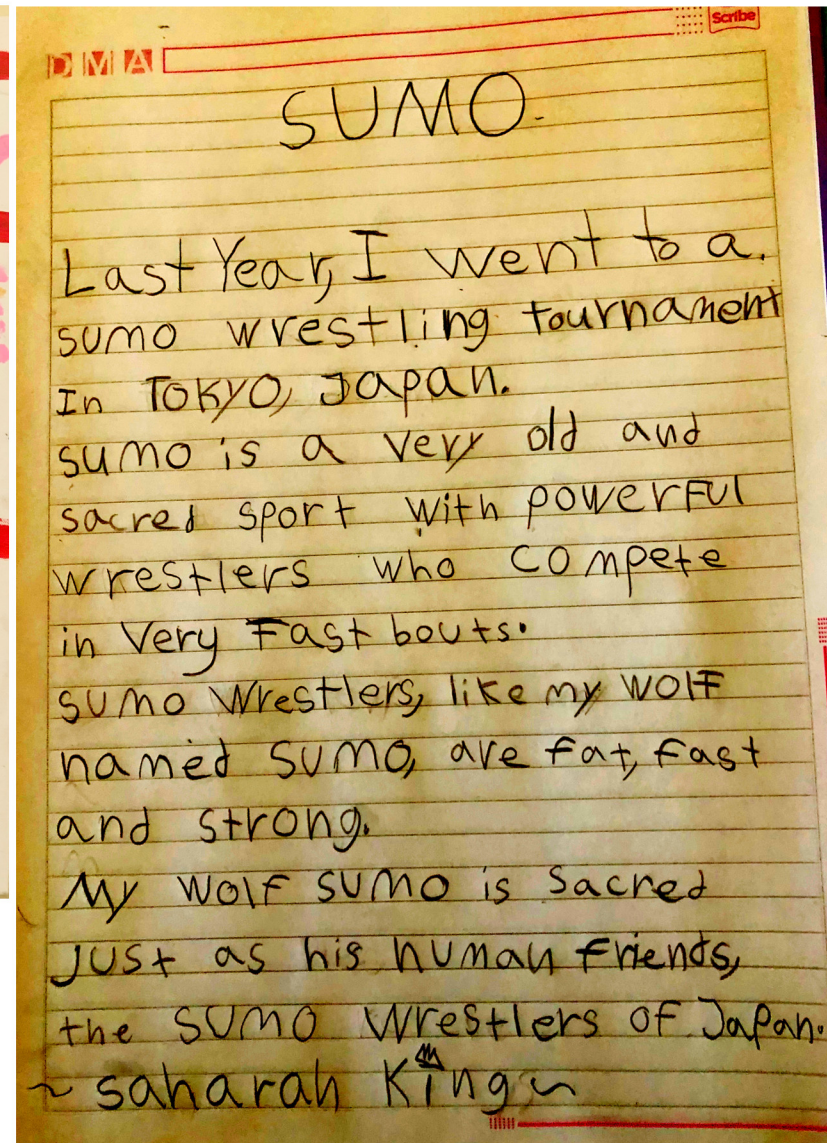 Scribe
D M A
SUMO.
Last Year, I went to a.
sumo wrestling tournament
In TOKYO, Japan.
sumo is a very old and
sacred sport with powerFul
wrestlers who compete
in Very Fast bouts.
sumo Wrestlers, like my WOlF
named SUMO, are fat, fast
and strong.
My WOlF SUMO is Sacred
JUSt as his human friends,
the SUMO Wrestlers of Japan.
~ saharah King ~